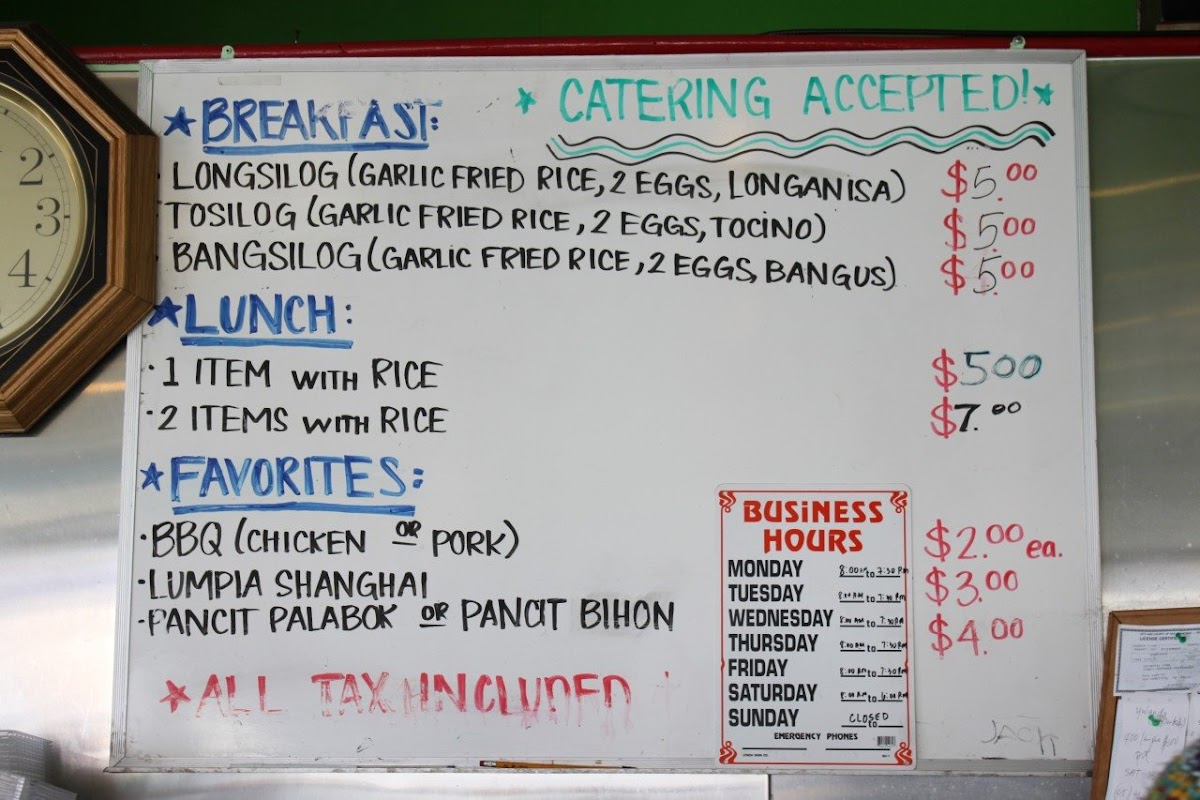 ★ CATERING ACCEPTED! ★
★ BREAKFAST:
· LONGSILOG (GARLIC FRIED RICE, 2 EGGS, LONGANISA) $5.00
· TOSILOG (GARLIC FRIED RICE, 2 EGGS, TOCINO) $5.00
· BANGSILOG (GARLIC FRIED RICE, 2 EGGS, BANGUS) $5.00
★ LUNCH:
· 1 ITEM WITH RICE $500
· 2 ITEMS WITH RICE $7.00
★ FAVORITES:
· BBQ (CHICKEN OR PORK) $2.00 ea.
· LUMPIA SHANGHAI $3.00
· PANCIT PALABOK OR PANCIT BIHON $4.00
★ ALL TAX INCLUDED
BUSINESS
HOURS
MONDAY 8:00AM to 7:30 PM
TUESDAY 8:00 AM to 7:30 PM
WEDNESDAY 8:00 AM to 7:30 PM
THURSDAY 8:00 AM to 7:30 PM
FRIDAY 8:00 AM to 7:30 PM
SATURDAY to
SUNDAY CLOSED to
EMERGENCY PHONES
JACK
2
3
4